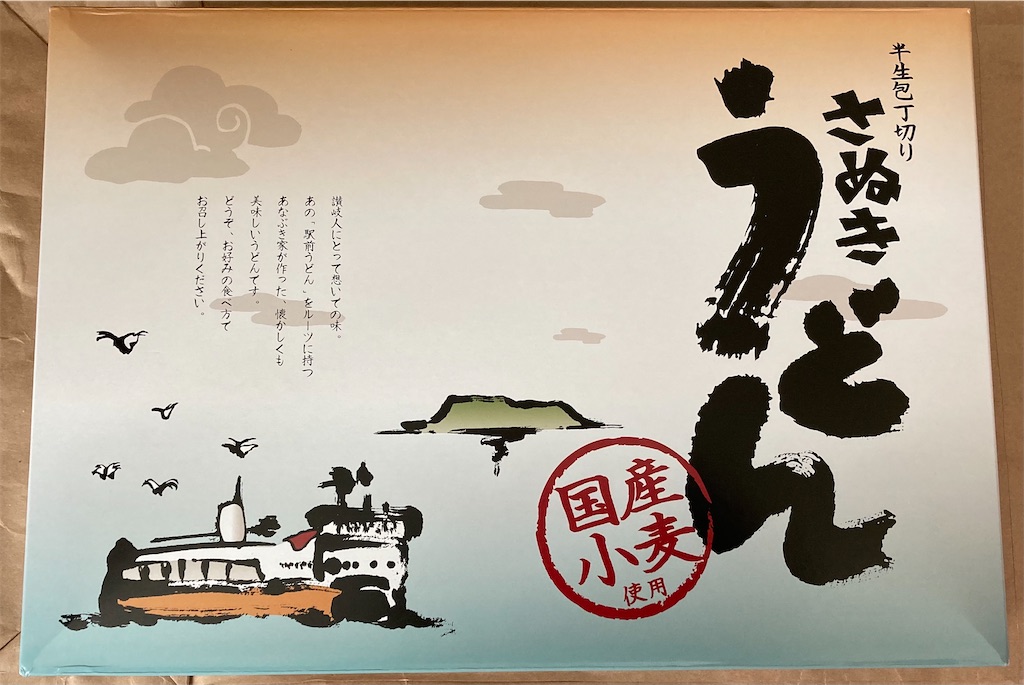 半生包丁切り
さぬき
うどん
讃岐人にとって想いての味。
あの「駅前うどん」をルーツに持つ
あなぶき家が作った、懐かしくも
美味しいうどんです。
どうぞ、お好みの食べ方で
お召し上がりください。
国産
小麦
使用